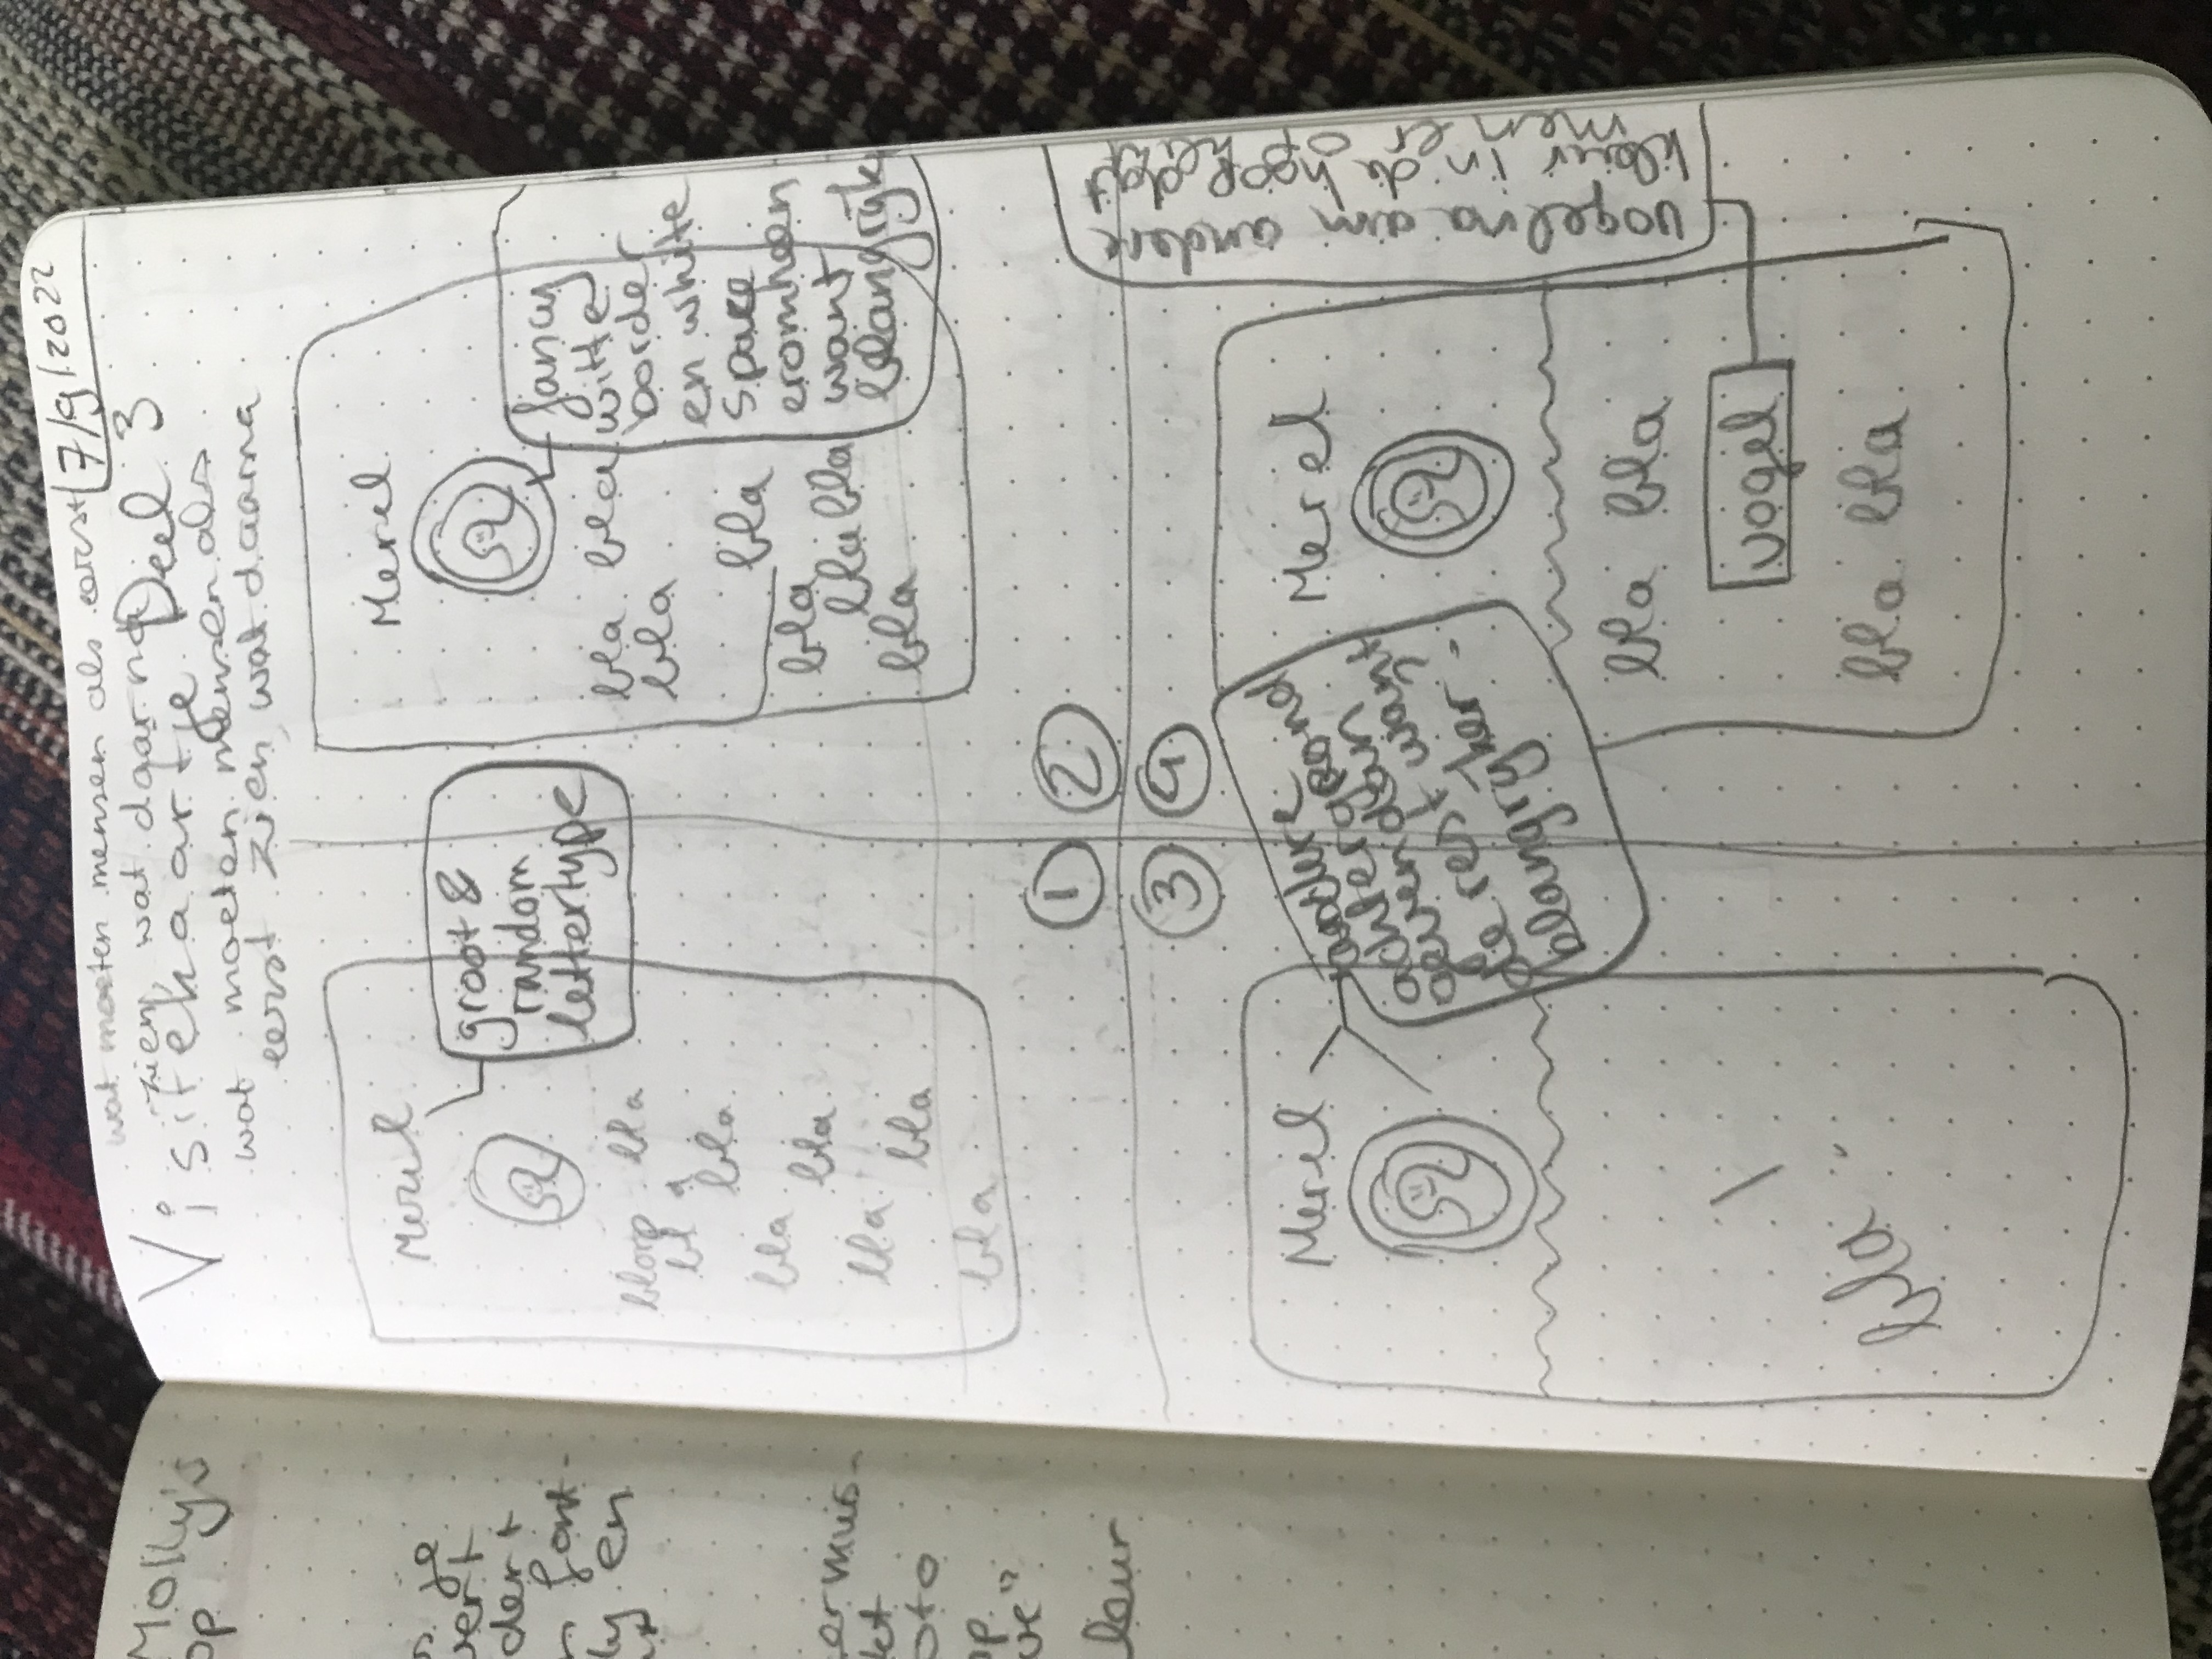 Molly's
op
s je
vert
dert
n font-
ly en
ermuis-
kt
oto
op.
ve"
leur
7/9/2022
wat moeten mensen als eerst
zien, wat daarna
Visitekaartje Deel 3
wat moeten mensen als
eerst zien, wat daarna
Merel
groot &
random
lettertype
blorp bla
bla
bla
bla
bla
bla
bla
bla
Merel
fancy
witte
border
en white
space
eromheen
want
blangrijk
bla bla
bla
bla
bla
bla bla
bla
1
2
3
4
Merel
andere
achtergrond
geven dan
de rest want
blangrijker?
bla
Merel
bla bla
vogel
bla bla
vogelnadim andere
kleur in de hoop dat
men er op klikt